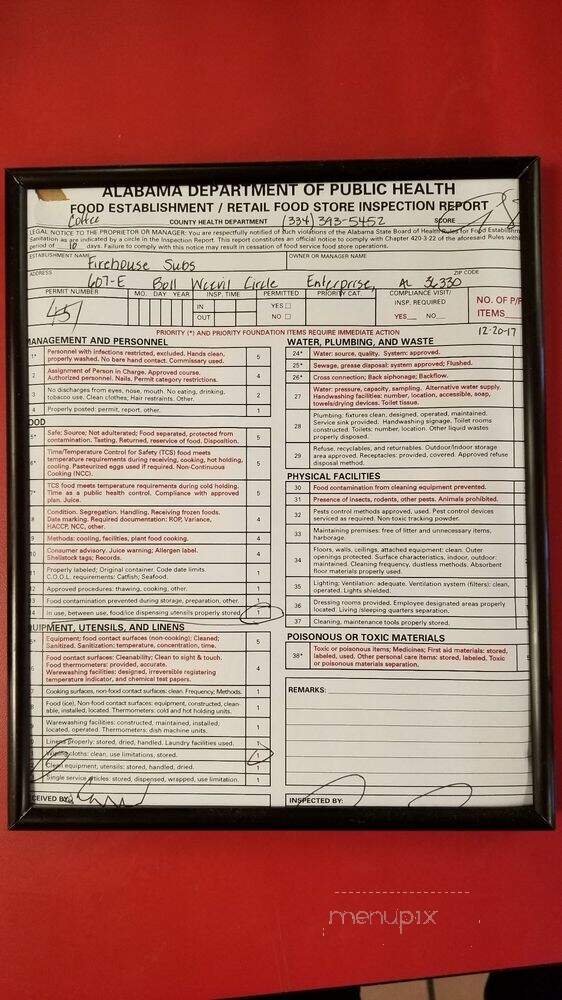 ALABAMA DEPARTMENT OF PUBLIC HEALTH
FOOD ESTABLISHMENT / RETAIL FOOD STORE INSPECTION REPORT
Coffee COUNTY HEALTH DEPARTMENT (334) 393-5452 SCORE
LEGAL NOTICE TO THE PROPRIETOR OR MANAGER: You are respectfully notified of such violations of the Alabama State Board of Health Rules for Food Establishment
Sanitation as are indicated by a circle in the Inspection Report. This report constitutes an official notice to comply with Chapter 420-3-22 of the aforesaid Rules with
period of 10 days. Failure to comply with this notice may result in cessation of food service food store operations.
ESTABLISHMENT NAME Firehouse Subs OWNER OR MANAGER NAME
ADDRESS 607-E Boll Weevil Circle Enterprise, AL ZIP CODE 36330
PERMIT NUMBER MO. DAY YEAR INSP. TIME PERMITTED PRIORITY CAT. COMPLIANCE VISIT/ INSP. REQUIRED NO. OF P/P ITEMS
IN YES
OUT NO YES NO
PRIORITY (*) AND PRIORITY FOUNDATION ITEMS REQUIRE IMMEDIATE ACTION 12-20-17
MANAGEMENT AND PERSONNEL
1* Personnel with infections restricted, excluded. Hands clean, 5
properly washed. No bare hand contact. Commissary used.
2 Assignment of Person in Charge. Approved course. 4
Authorized personnel. Nails. Permit category restrictions.
3 No discharges from eyes, nose, mouth. No eating, drinking, 2
tobacco use. Clean clothes; Hair restraints. Other.
4 Properly posted: permit, report, other. 1
OOD
5* Safe; Source; Not adulterated; Food separated, protected from 5
contamination. Tasting. Returned, reservice of food. Disposition.
Time/Temperature Control for Safety (TCS) food meets 5
temperature requirements during receiving, cooking, hot holding,
cooling. Pasteurized eggs used if required. Non-Continuous
Cooking (NCC).
7* TCS food meets temperature requirements during cold holding. 5
Time as a public health control. Compliance with approved
plan. Juice.
8 Condition. Segregation. Handling. Receiving frozen foods. 4
Date marking. Required documentation: ROP, Variance,
HACCP, NCC, other.
9 Methods: cooling, facilities, plant food cooking. 4
10 Consumer advisory. Juice warning; Allergen label. 4
Shellstock tags; Records.
11 Properly labeled; Original container. Code date limits. 1
C.O.O.L. requirements: Catfish; Seafood.
12 Approved procedures: thawing, cooking, other. 1
13 Food contamination prevented during storage, preparation, other. 1
14 In use, between use, food/ice dispensing utensils properly stored. 1
EQUIPMENT, UTENSILS, AND LINENS
Equipment; food contact surfaces (non-cooking); Cleaned; 5
Sanitized. Sanitization: temperature, concentration, time.
Food contact surfaces: Cleanability; Clean to sight & touch. 4
Food thermometers: provided, accurate.
Warewashing facilities: designed, irreversible registering
temperature indicator, and chemical test papers.
7 Cooking surfaces, non-food contact surfaces: clean. Frequency; Methods. 1
Food (ice). Non-food contact surfaces: equipment, constructed, clean- 1
able, installed, located. Thermometers: cold and hot holding units.
Warewashing facilities: constructed, maintained, installed; 1
located, operated. Thermometers: dish machine units.
Linens properly: stored, dried, handled. Laundry facilities used. 1
Wiping cloths: clean, use limitations, stored. 1
Clean equipment, utensils: stored, handled, dried. 1
Single service articles: stored, dispensed, wrapped, use limitation. 1
CEIVED BY:
WATER, PLUMBING, AND WASTE
24* Water: source, quality. System: approved.
25* Sewage, grease disposal: system approved; Flushed.
26* Cross connection; Back siphonage; Backflow.
27 Water: pressure, capacity, sampling. Alternative water supply.
Handwashing facilities: number, location, accessible, soap,
towels/drying devices. Toilet tissue.
28 Plumbing: fixtures clean, designed, operated, maintained.
Service sink provided. Handwashing signage. Toilet rooms
constructed. Toilets: number, location. Other liquid wastes
properly disposed.
29 Refuse, recyclables, and returnables. Outdoor/Indoor storage
area approved. Receptacles: provided, covered. Approved refuse
disposal method.
PHYSICAL FACILITIES
30 Food contamination from cleaning equipment prevented.
31 Presence of insects, rodents, other pests. Animals prohibited.
32 Pests control methods approved, used. Pest control devices
serviced as required. Non-toxic tracking powder.
33 Maintaining premises: free of litter and unnecessary items,
harborage.
34 Floors, walls, ceilings, attached equipment: clean. Outer
openings protected. Surface characteristics, indoor, outdoor:
maintained. Cleaning frequency, dustless methods. Absorbent
floor materials properly used.
35 Lighting; Ventilation: adequate. Ventilation system (filters): clean,
operated. Lights shielded.
36 Dressing rooms provided. Employee designated areas properly
located. Living /sleeping quarters separation.
37 Cleaning, maintenance tools properly stored.
POISONOUS OR TOXIC MATERIALS
38* Toxic or poisonous items; Medicines; First aid materials: stored, 5
labeled, used. Other personal care items: stored, labeled. Toxic
or poisonous materials separation.
REMARKS:
INSPECTED BY:
menupix